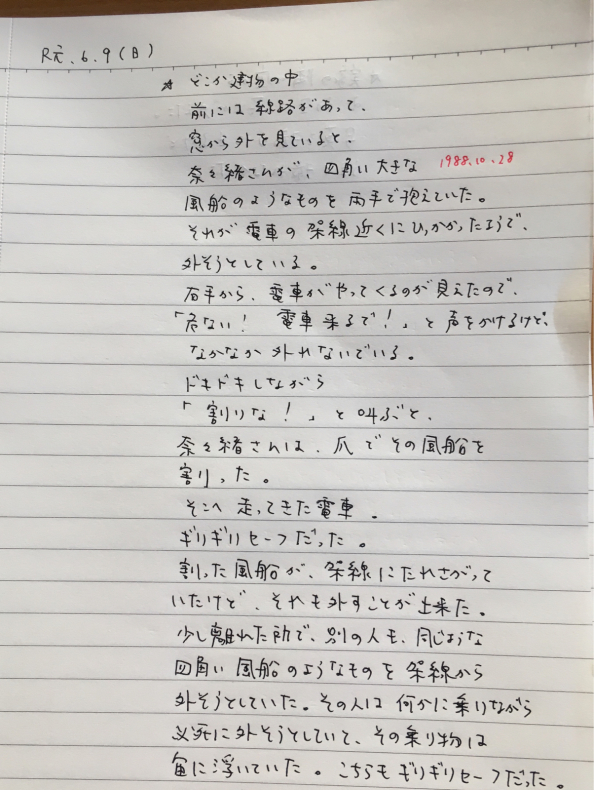 R元.6.9(日)
☆ どこか建物の中
前には線路があって、
窓から外を見ていると、
奈々緒さんが、四角い大きな 1988.10.28
風船のようなものを両手で抱えていた。
それが電車の架線近くにひっかかったようで、
外そうとしている。
右手から、電車がやってくるのが見えたので、
「危ない! 電車来るで!」と声をかけるけど、
なかなか外れないでいる。
ドキドキしながら
「割りな!」と叫ぶと、
奈々緒さんは、爪でその風船を
割りった。
そこへ走ってきた電車.
ギリギリセーフだった。
割った風船が、架線にたれさがって
いたけど、それも外すことが出来た。
少し離れた所で、別の人も、同じような
四角い風船のようなものを架線から
外そうとしていた。その人は何かに乗りながら
必死に外そうとしていて、その乗り物は
宙に浮いていた。こちらもギリギリセーフだった。